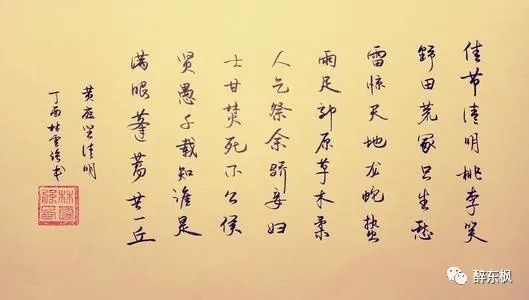 佳节清明桃李笑
野田荒冢只生愁
雷惊天地龙蛇蛰
雨足郊原草木柔
人乞祭余骄妾妇
士甘焚死不公侯
贤愚千载知谁是
满眼蓬蒿共一丘
黄庭坚清明
丁酉林雲书
醉东枫